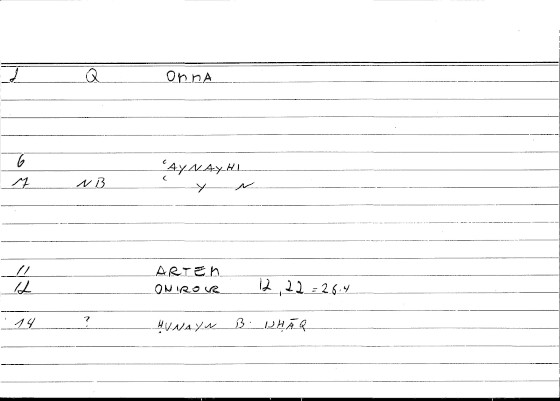 1 Q OnnA
6 ʿAYNAYHI
7 NB ʿ Y N
11 ARTEM
12 ONIROCR 12,22 = 26.4
14 ? ḤUNAYN B. ISḤĀQ